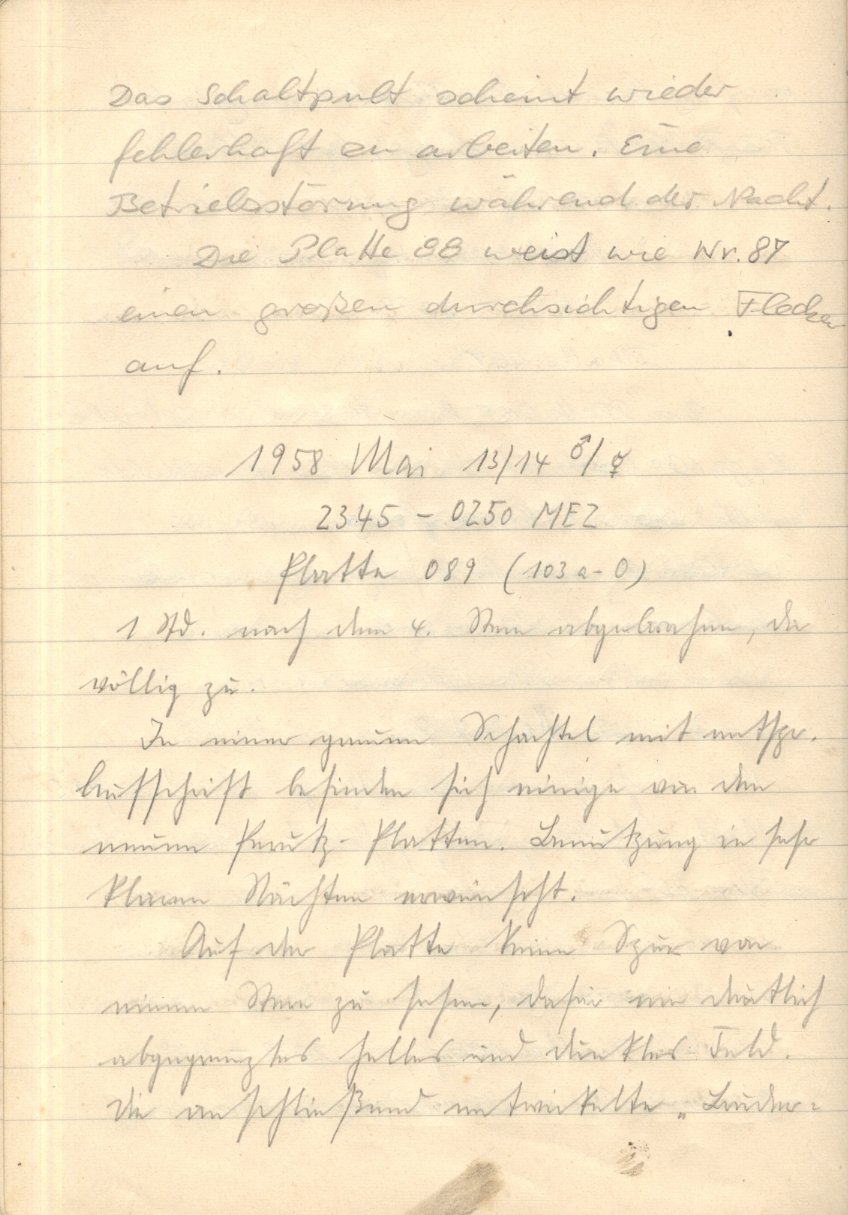 Das Schaltpult scheint wieder
fehlerhaft zu arbeiten. Eine
Betriebsstörung während der Nacht.
Die Platte 88 weist wie Nr. 87
einen großen durchsichtigen Flecken
auf.
1958 Mai 13/14 ♂/☿
2345 - 0250 MEZ
Platte 089 (103a-O)
1 Std. nach dem 4. Stern abgebrochen, da
völlig zu.
In einer grauen Schachtel mit entspr.
Aufschrift befinden sich einige von den
neuen Perutz-Platten. Benutzung in sehr
klaren Nächten erwünscht.
Auf der Platte keine Spur von
einem Stern zu sehen, dafür ein deutlich
abgegrenztes helles und dunkles Feld.
Die anschließend entwickelte „Bruder-